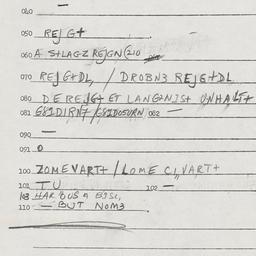 040 —
050 REJG+
060 A S+LAGZ REJGN(210
070 REJG+DL / DROBN3 REJG+DL
080 DEREJG+ ET LANGZNJS+ UNHALT+
081 681D1RN+/681DO5URN 082 —
090 —
091 0
100 ZOMEVART+ / LOME CI,VART+
101 TU 102 —
110 — BUT NOM3